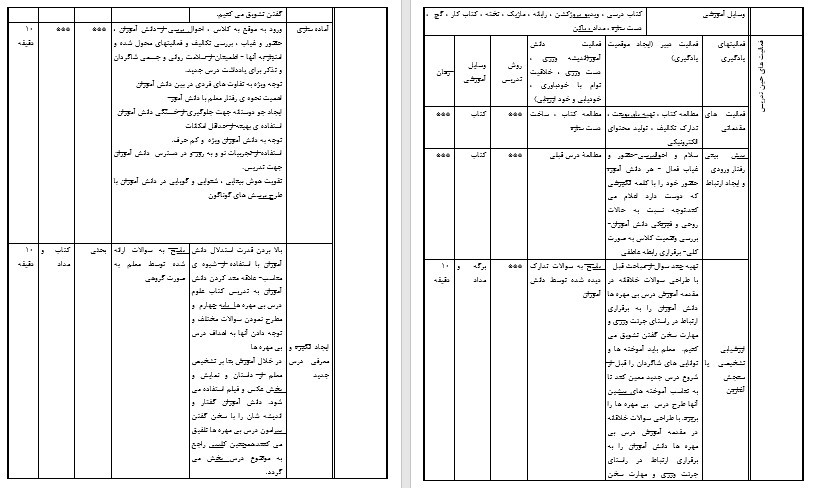 وسایل آموزشی
کتاب درسی ، ویدیو پروژکشن ، رایانه ، ماژیک ، تخته ، کتاب کار ، گچ ،
دست سازه ، مداد ، پاکن
فعالیت های حین تدریس
فعالیتهای
یادگیری
فعالیت دبیر (ایجاد موقعیت
یادگیری)
فعالیت دانش
آموز(اندیشه ورزی ،
دست ورزی ، خلاقیت
توام با خودباوری ،
خودیابی و خود ارزشی)
روش
تدریس
وسایل
آموزشی
زمان
فعالیت های
مقدماتی
مطالعه کتاب ، تهیه پاورپوینت ،
تدارک تکالیف ، تولید محتوای
الکترونیکی
مطالعه کتاب ، ساخت
دست سازه
***
کتاب
***
پیش بینی
رفتار ورودی
و ایجاد ارتباط
سلام و احوالپرسی-حضور و
غیاب فعال - هر دانش آموز
حضور خود را با کلمه انگیزشی
که دوست دارد اعلام می
کند.توجه نسبت به حالات
روحی و فیزیکی دانش آموزان-
بررسی وضعیت کلاس به صورت
کلی- برقراری رابطه عاطفی
مطالعهٔ درس قبلی
***
کتاب
***
ارزشیابی
تشخیصی یا
سنجش
آغازین
تهیه چند سوال از مباحث قبل
با طراحی سوالات خلاقانه در
مقدمه آموزش درس بی مهره ها
دانش آموزان را به برقراری
ارتباط در راستای جرئت ورزی و
مهارت سخن گفتن تشویق می
کنیم. معلم باید آموخته ها و
توانایی های شاگردان را قبل از
شروع درس جدید معین کند تا
به تناسب آموخته های پیشین
آنها طرح درس بی مهره ها را
بریزد. با طراحی سوالات خلاقانه
در مقدمه آموزش درس بی
مهره ها دانش آموزان را به
برقراری ارتباط در راستای
جرئت ورزی و مهارت سخن
پاسخ به سوالات تدارک
دیده شده توسط دانش
آموزان
***
برگه و
مداد
۱۰
دقیقه
گفتن تشویق می کنیم.
آماده سازی
ورود به موقع به کلاس ، احوال پرسی از دانش آموزان ،
حضور و غیاب ، بررسی تکالیف و فعالیتهای محول شده و
امتیاز به آنها - اطمینان از سلامت روانی و جسمی شاگردان
و تذکر برای یادداشت درس جدید.
توجه ویژه به تفاوت های فردی در بین دانش آموزان
اهمیت نحوه ی رفتار معلم با دانش آموز
ایجاد جو دوستانه جهت جلوگیری از خستگی دانش آموزان
استفاده ی بهینه از حداقل امکانات
توجه به دانش آموزان ویژه و کم حرف.
استفاده از تجربیات نو و به روز و در دسترس دانش آموزان
جهت تدریس.
تقویت هوش بینایی ، شنوایی و گویایی در دانش آموزان با
طرح پرسش های گوناگون
***
***
۱۰
دقیقه
ایجاد انگیزه و
معرفی درس
جدید
بالا بردن قدرت استدلال دانش
آموزان با استفاده از شیوه ی
مناسب- علاقه مند کردن دانش
آموزان به تدریس کتاب علوم
درس بی مهره ها پایه چهارم و
مطرح نمودن سوالات مختلف و
توجه دادن آنها به اهداف درس
بی مهره ها
در خلال آموزش بنا بر تشخیص
معلم از داستان و نمایش و
پخش عکس و فیلم استفاده می
شود. دانش آموزان گفتار و
اندیشه شان را با سخن گفتن
پیرامون درس بی مهره ها تلفیق
می کنند.همچنین کلیپی راجع
به موضوع درس پخش می
گردد.
پاسخ به سوالات ارائه
شده توسط معلم به
صورت گروهی
بحثی
کتاب و
مداد
۱۰
دقیقه